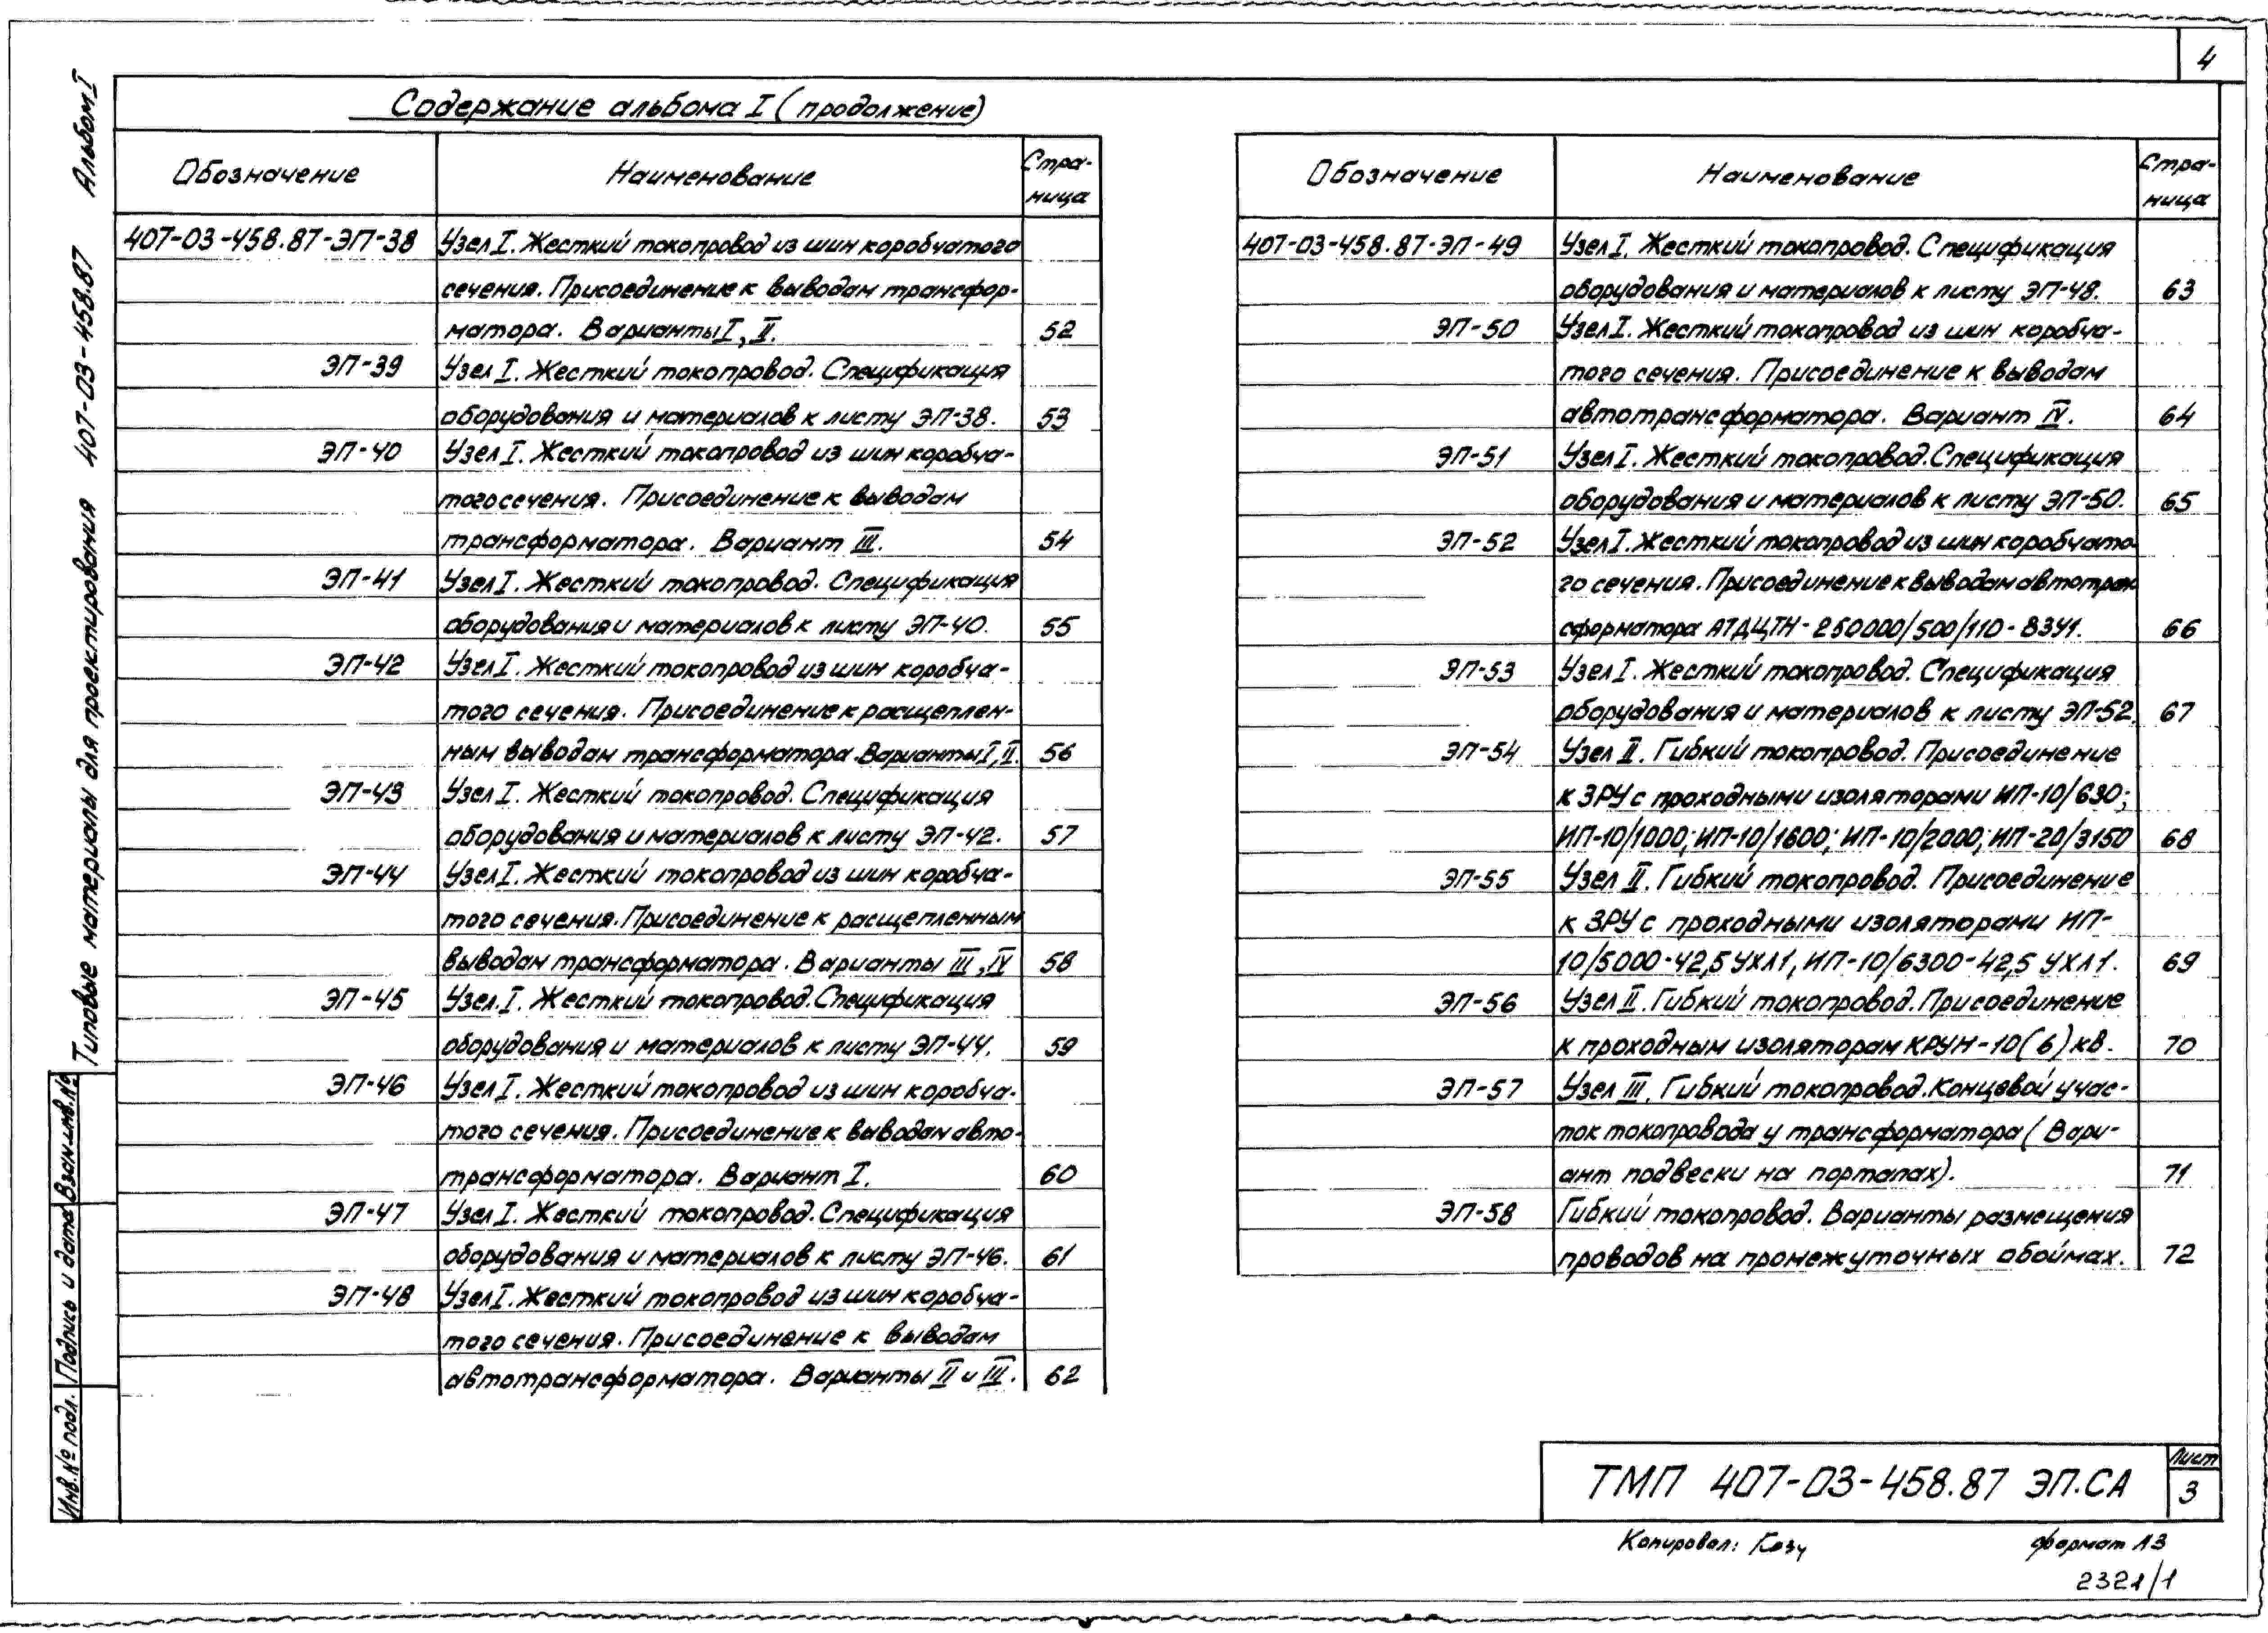 4
Содержание альбома I (продолжение)
Обозначение Наименование Стра-
ница
407-03-458.87-ЭП-38 Узел I. Жесткий токопровод из шин коробчатого
сечения. Присоединение к выводам трансфор-
матора. Варианты I, II. 52
ЭП-39 Узел I. Жесткий токопровод. Спецификация
оборудования и материалов к листу ЭП-38. 53
ЭП-40 Узел I. Жесткий токопровод из шин коробча-
того сечения. Присоединение к выводам
трансформатора. Вариант III. 54
ЭП-41 Узел I. Жесткий токопровод. Спецификация
оборудования и материалов к листу ЭП-40. 55
ЭП-42 Узел I. Жесткий токопровод из шин коробча-
того сечения. Присоединение к расщеплен-
ным выводам трансформатора. Варианты I, II. 56
ЭП-43 Узел I. Жесткий токопровод. Спецификация
оборудования и материалов к листу ЭП-42. 57
ЭП-44 Узел I. Жесткий токопровод из шин коробча-
того сечения. Присоединение к расщепленным
выводам трансформатора. Варианты III, IV 58
ЭП-45 Узел. I. Жесткий токопровод. Спецификация
оборудования и материалов к листу ЭП-44. 59
ЭП-46 Узел I. Жесткий токопровод из шин коробча-
того сечения. Присоединение к выводам авто-
трансформатора. Вариант I. 60
ЭП-47 Узел I. Жесткий токопровод. Спецификация
оборудования и материалов к листу ЭП-46. 61
ЭП-48 Узел I. Жесткий токопровод из шин коробча-
того сечения. Присоединение к выводам
автотрансформатора. Варианты II и III. 62
Обозначение Наименование Стра-
ница
407-03-458.87-ЭП-49 Узел I. Жесткий токопровод. Спецификация
оборудования и материалов к листу ЭП-48. 63
ЭП-50 Узел I. Жесткий токопровод из шин коробча-
того сечения. Присоединение к выводам
автотрансформатора. Вариант IV. 64
ЭП-51 Узел I. Жесткий токопровод. Спецификация
оборудования и материалов к листу ЭП-50. 65
ЭП-52 Узел I. Жесткий токопровод из шин коробчато-
го сечения. Присоединение к выводам автотран
сформатора АТДЦТН-250000/500/110-83У1. 66
ЭП-53 Узел I. Жесткий токопровод. Спецификация
оборудования и материалов к листу ЭП-52. 67
ЭП-54 Узел II. Гибкий токопровод. Присоединение
к ЗРУ с проходными изоляторами ИП-10/630;
ИП-10/1000; ИП-10/1600; ИП-10/2000; ИП-20/3150 68
ЭП-55 Узел II. Гибкий токопровод. Присоединение
к ЗРУ с проходными изоляторами ИП-
10/5000-42,5 УХЛ1, ИП-10/6300-42,5 УХЛ1. 69
ЭП-56 Узел II. Гибкий токопровод. Присоединение
к проходным изоляторам КРУН-10(6) кв. 70
ЭП-57 Узел III. Гибкий токопровод. Концевой учас-
ток токопровода у трансформатора (Вари-
ант подвески на порталах). 71
ЭП-58 Гибкий токопровод. Варианты размещения
проводов на промежуточных обоймах. 72
Типовые материалы для проектирования 407-03-458.87 Альбом I
Инв.№ подл. Подпись и дата Взам.инв.№
ТМП 407-03-458.87 ЭП.СА
Лист
3
Копировал:
формат А3
2321/1